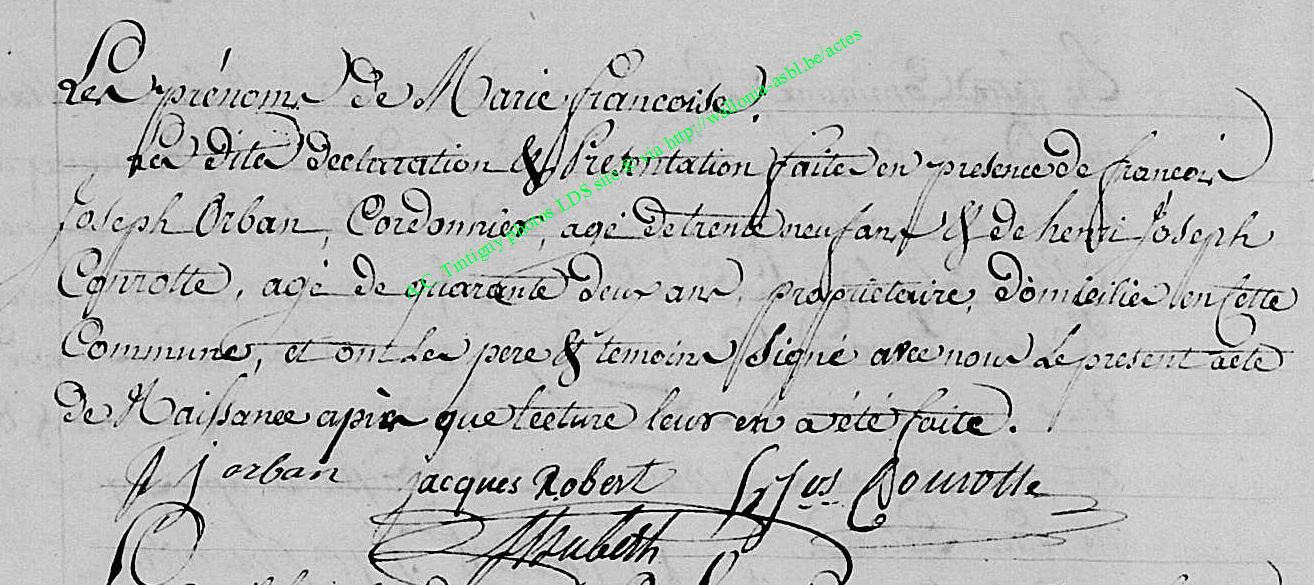 Les prénoms de Marie francoise.
Les dites declaration & Présentation faites en presence de francois
Joseph Orban, Cordonnier, agé de trente neuf ans & de henri Joseph
Conrotte, agé de quarante deux ans, propriétaire, domiciliés en Cette
Commune, et ont Les pere & temoins Signé avec nous Le present acte
de Naissance après que lecture leur en a été faite.
f j orban jacques Robert h jos Conrotte
A.C. Tintigny photos LDS site # via http://wallonia-asbl.be/actes